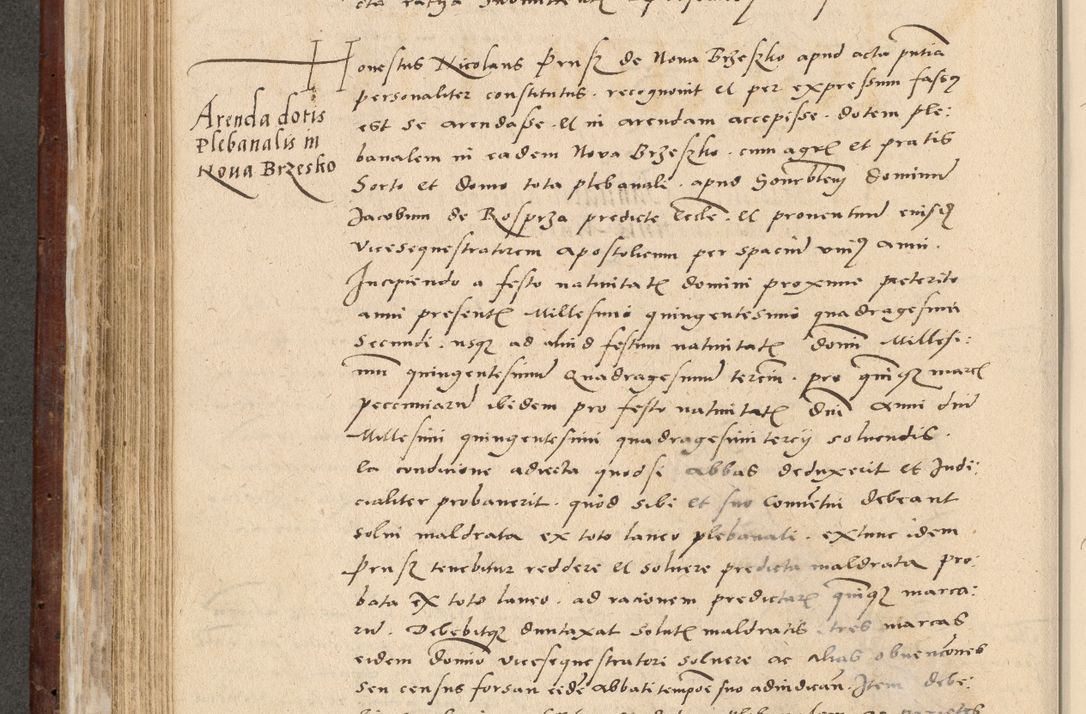 Honestus Nicolaus Prusz de Nova Brzeszko apud acta pñtia
personaliter constitutus. recognovit et per expressum fassus
est se arendasse. et in arendam accepisse. dotem ple:
banalem in eadem Nova Brzeszko. cum agris et pratis
horto et domo tota plebanali. apud honorabilem dominum
Jacobum de Rosprza predicte Eccle. et proventuum eiusdem
vicesequestratorem apostolicum per spacium unius anni.
Incipiendo a festo nativitatis domini proxime preterito
anni presentis Millesimo quingentesimo quadragesimi
secundi. usque ad aliud festum nativitatis domini Millesi:
mum quingentesimum Quadragesimum tercium. pro quinque marcis
pecuniarum ibidem pro festo nativitatis dni Anni dni
Millesimi quingentesimi quadragesimi tercij solvendis.
Ea condicione adiecta quod si Abbas deduxerit et Judi:
cialiter probaverit. quod sibi et suo Conventui debeant
solvi maldrata ex toto laneo plebanali. extunc idem
Prusz tenebitur reddere et solvere predicta maldrata pro:
bata ex toto laneo. ad racionem predictarum quinque marca:
rum. Debebitque duntaxat solutis maldratis tres marcas
eidem domino vicesequestratori solvere ac alias obvenciones
seu census forsan eidem Abbati tempore suo adiudicandum. Item debe:
Arenda dotis
Plebanalis in
Nova Brzesko